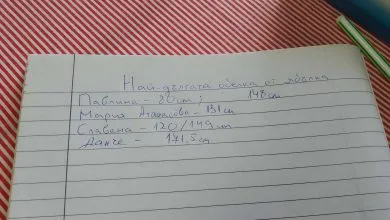 Най-дългата обелка от ябълка
Павлина - 80 cm ; 148 cm
Мария Атанасова - 131 cm
Славена - 120/149 cm
Данче - 171,5 cm